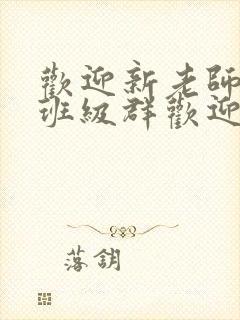 歡迎新老師
班級群歡迎
落鈅